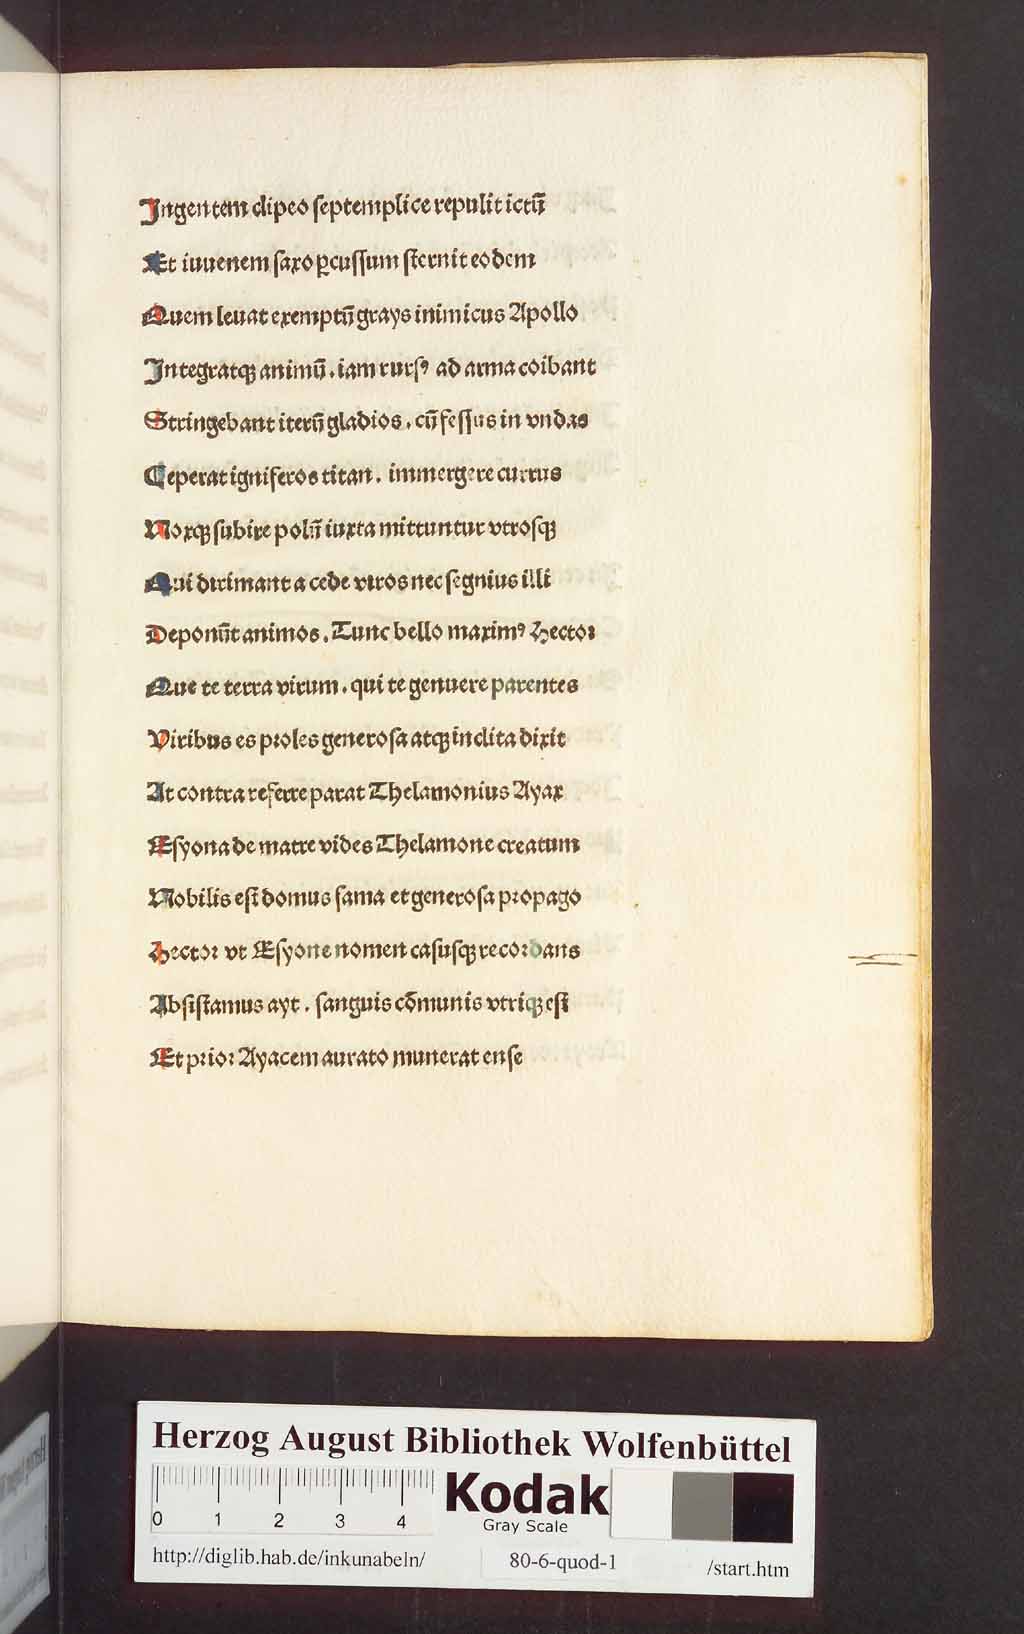 Ingentem clipeo ſeptemplice repulit ictū
Et iuuenem ſaxo ꝑcuſſum ſternit eodem
Quem leuat exemptū grays inimicus Apollo
Integratqꝫ animū . iam rurſꝰ ad arma coibant
Stringebant iterū gladios . cū feſſus in vndas
Ceperat igniferos titan . immergere currus
Noxqꝫ ſubire polū iuxta mittuntur vtroſqꝫ
Qui dirimant a cede viros nec ſegnius illi
Deponūt animos . Tunc bello maximꝰ Hector
Que te terra virum . qui te genuere parentes
Viribus es proles generoſa atqꝫ inclita dixit
At contra referre parat Thelamonius Ayax
Eſyona de matre vides Thelamone creatum
Nobilis eſt domus fama et generoſa propago
Hector vt Eſyone nomen caſuſqꝫ recordans
Abſiſtamus ayt . ſanguis cōmunis vtriqꝫ eſt
Et prior Ayacem aurato munerat enſe
Herzog August Bibliothek Wolfenbüttel
0 1 2 3 4
Kodak
Gray Scale
http://diglib.hab.de/inkunabeln/ 80-6-quod-1 /start.htm